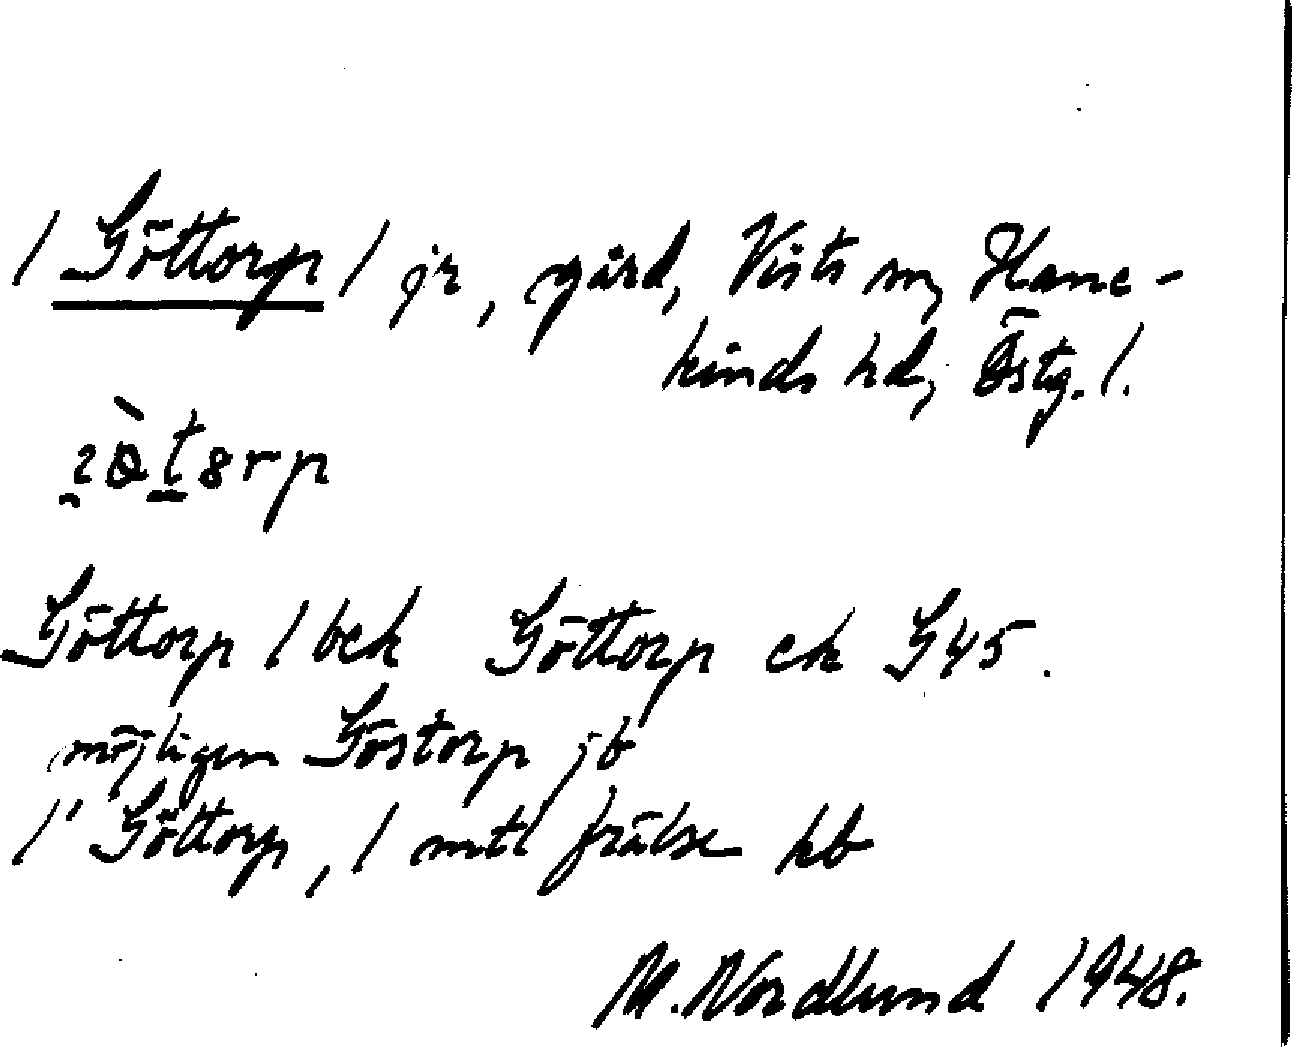 1 Göttorp 1 jr, gård, Vists sn, Hane-
kinds hd, Östg. l.
Göttorp 1 bek Göttorp ek G45.
möjligen Göstorp jb
1' Göttorp, 1 mtl frälse kb
M. Nordlund 1948.